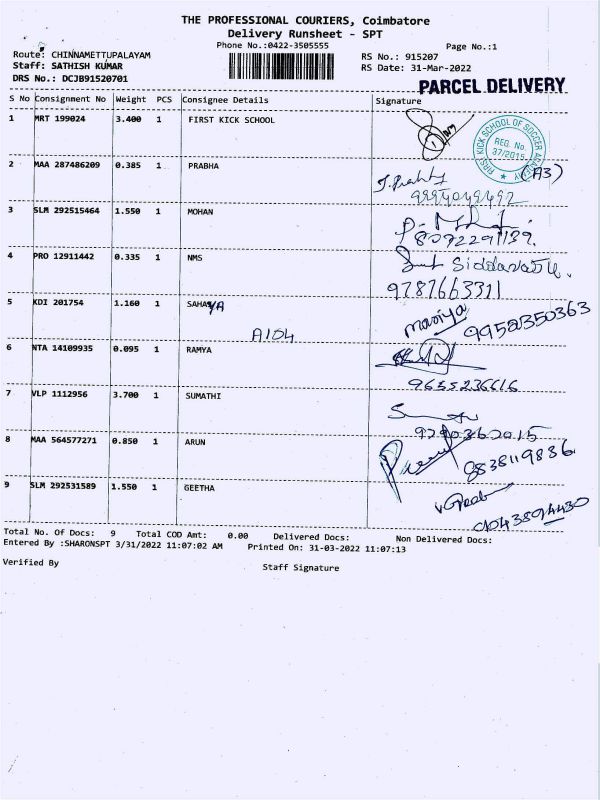 THE PROFESSIONAL COURIERS, Coimbatore
Delivery Runsheet - SPT
Phone No.:0422-3505555
Page No.:1
Route: CHINNAMETTUPALAYAM
RS No.: 915207
Staff: SATHISH KUMAR
RS Date: 31-Mar-2022
DRS No.: DCJB91520701
PARCEL DELIVERY
S No Consignment No Weight PCS Consignee Details Signature
1 MRT 199024 3.400 1 FIRST KICK SCHOOL
FIRST KICK SCHOOL OF SOCCER ACADEMY
REG. No.
37/2015
(A3)
2 MAA 287486209 0.385 1 PRABHA
3 SLM 292515464 1.550 1 MOHAN
8072291139.
4 PRO 12911442 0.335 1 NMS
9787663311
5 KDI 201754 1.160 1 SAHAYA
mariya 9952350363
A104
6 NTA 14109935 0.095 1 RAMYA
9655236616
7 VLP 1112956 3.700 1 SUMATHI
9790362015
8 MAA 564577271 0.850 1 ARUN
9838119836
9 SLM 292531589 1.550 1 GEETHA
Total No. Of Docs: 9 Total COD Amt: 0.00 Delivered Docs: Non Delivered Docs:
Entered By :SHARONSPT 3/31/2022 11:07:02 AM Printed On: 31-03-2022 11:07:13
Verified By
Staff Signature